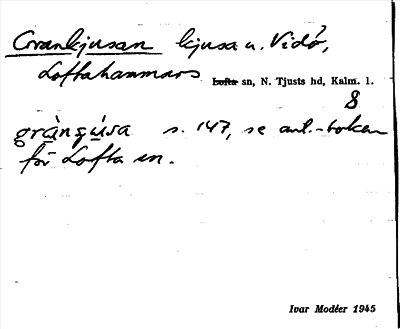 Grankjusan kjusa u. Vidö,
Loftahammars Lofta sn, N. Tjusts hd, Kalm. l.
8
s. 147, se ant.-boken
för Lofta sn.
Ivar Modéer 1945